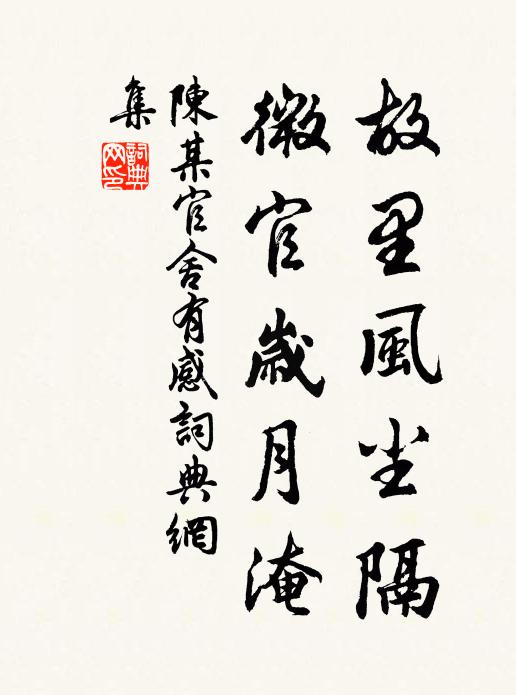 故里風尘隔
微官歲月淹
陳某官舍有感詞典網
集
詞典
网印